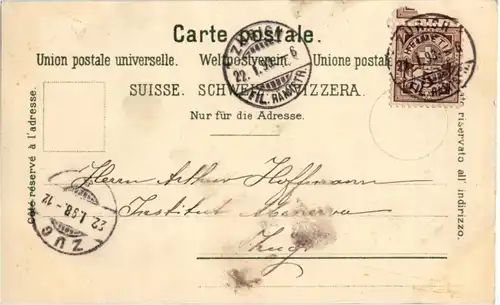 Carte postale.
Union postale universelle. Weltpostverein. Unione postale
SUISSE. SCHWEIZ. SVIZZERA.
Nur für die Adresse.
Côté réservé à l'adresse.
riservato all' indirizzo.
22.I.98.-6
FIL. RÄMISTR.
HELVETIA
ZUG
22.I.98.-12
Herrn Arthur Hoffmann
Institut Minerva
Zug.